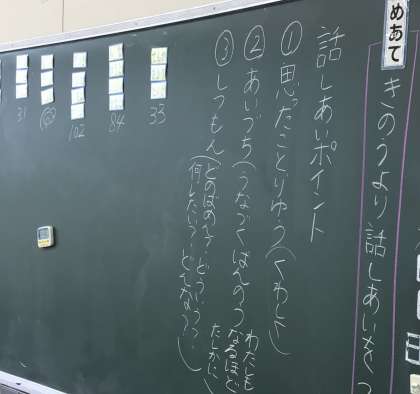 めあて
きのうより話しあいをつ
話しあいポイント
① 思ったことりゆう(くわしく)
② あいづち(うなずく ばんのう なるほど
わたしも
たしかに)
③ しつもん(どのばめんで?どういう?
何じたい?どんな?)
33
84
102
31